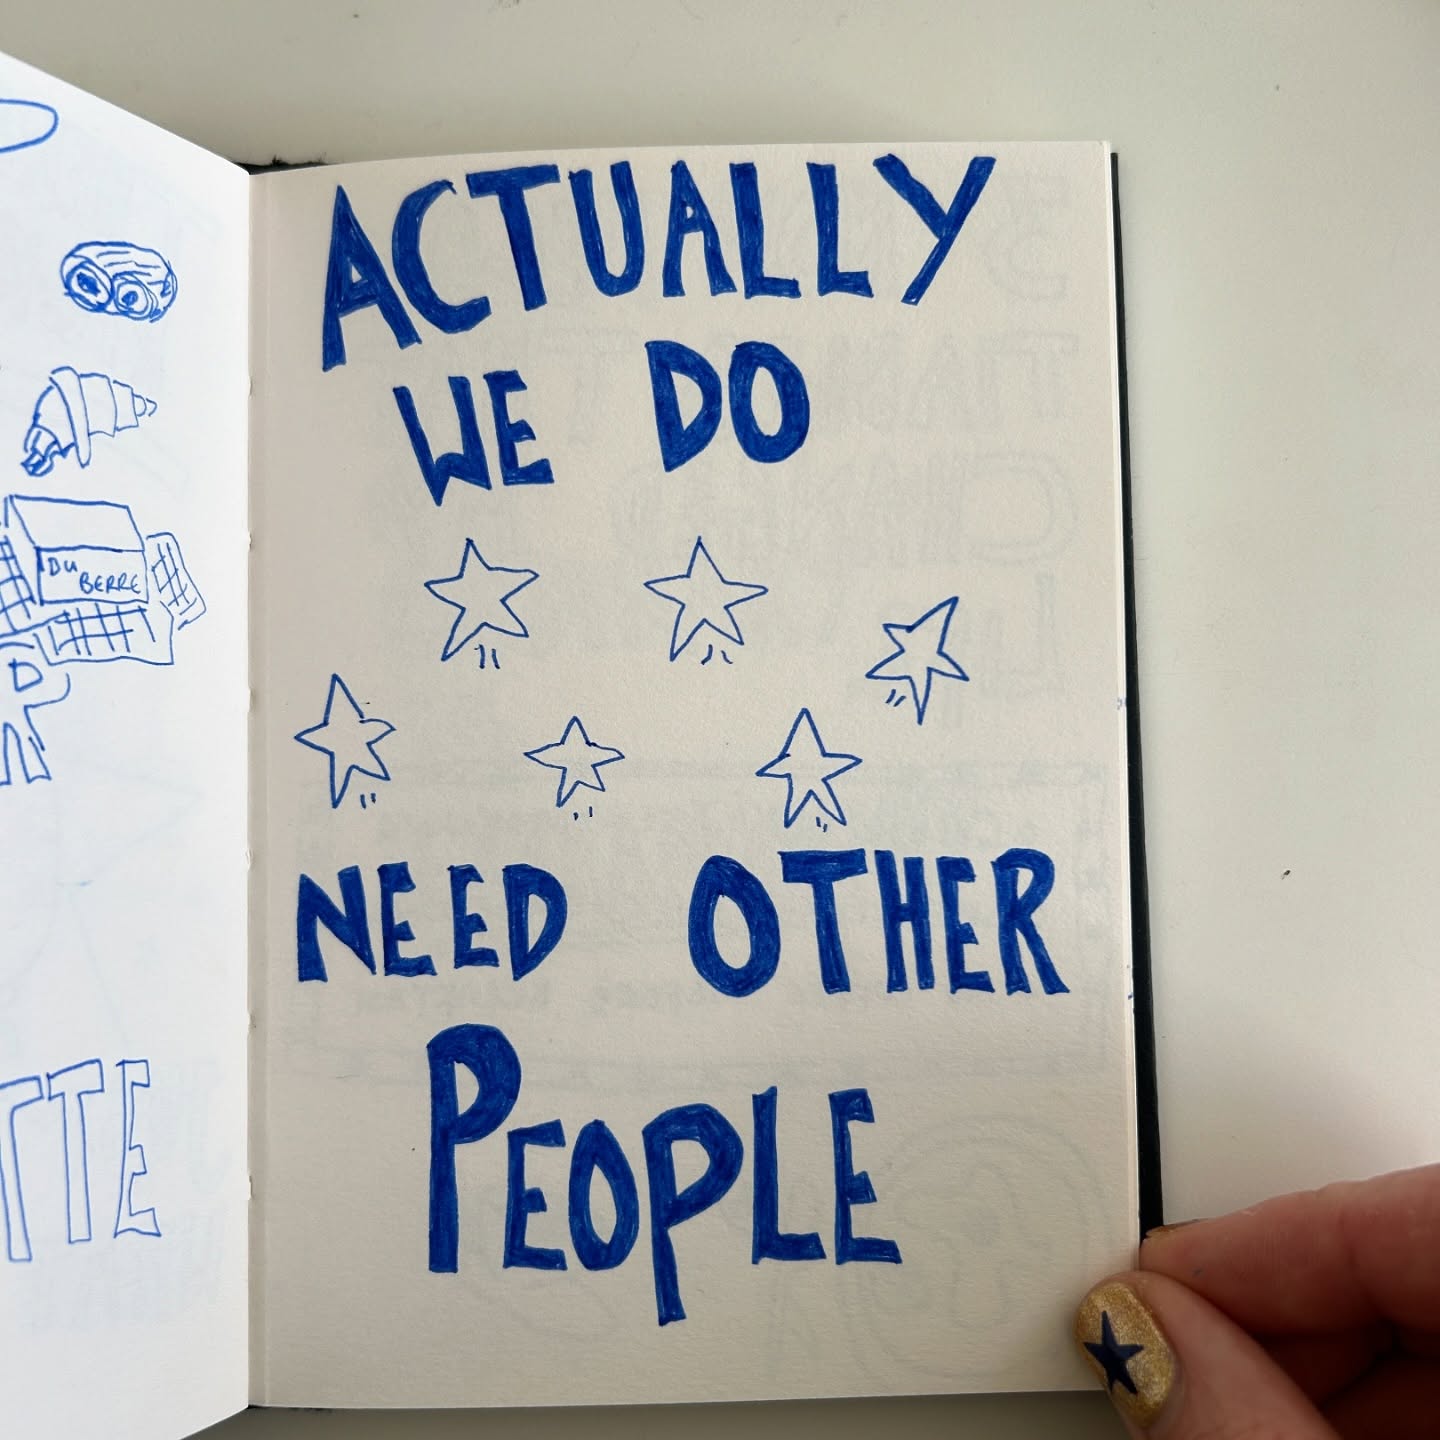 DU
BERRE
TTE
ACTUALLY
WE DO
NEED OTHER
PEOPLE